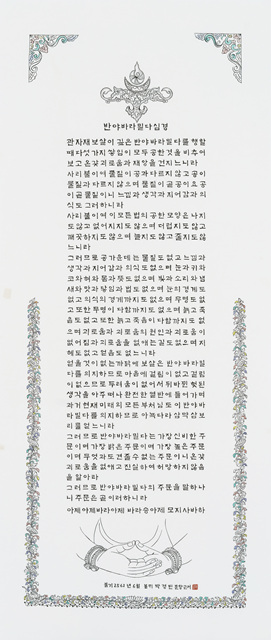 반야바라밀다심경
관자재보살이 깊은 반야바라밀다를 행할
때 다섯 가지 쌓임이 모두 공한 것을 비추어
보고 온갖 괴로움과 재앙을 건지느니라
사리불이여 물질이 공과 다르지 않고 공이
물질과 다르지 않으며 물질이 곧 공이요 공
이 곧 물질이니 느낌과 생각과 지어감과 의
식도 그러하니라
사리불이여 이 모든 법의 공한 모양은 나지
도 않고 없어지지도 않으며 더럽지도 않고
깨끗하지도 않으며 늘지도 않고 줄지도 않
느니라
그러므로 공 가운데는 물질도 없고 느낌과
생각과 지어감과 의식도 없으며 눈과 귀와
코와 혀와 몸과 뜻도 없으며 빛과 소리와 냄
새와 맛과 닿임과 법도 없으며 눈의 경계도
없고 의식의 경계까지도 없으며 무명도 없
고 또한 무명이 다함까지도 없으며 늙고 죽
음도 없고 또한 늙고 죽음이 다함까지도 없
으며 괴로움과 괴로움의 원인과 괴로움이
없어짐과 괴로움을 없애는 길도 없으며 지
혜도 없고 얻음도 없느니라
얻을 것이 없는 까닭에 보살은 반야바라밀
다를 의지하므로 마음에 걸림이 없고 걸림
이 없으므로 두려움이 없어서 뒤바뀐 헛된
생각을 아주 떠나 완전한 열반에 들어가며
과거 현재 미래의 모든 부처님도 이 반야바
라밀다를 의지하므로 아녹다라삼먁삼보
리를 얻느니라
그러므로 반야바라밀다는 가장 신비한 주
문이며 가장 밝은 주문이며 가장 높은 주문
이며 무엇과도 견줄 수 없는 주문이니 온갖
괴로움을 없애고 진실하여 허망하지 않음
을 알아라
그러므로 반야바라밀다의 주문을 말하나
니 주문은 곧 이러하니라
아제아제 바라아제 바라승아제 모지사바하